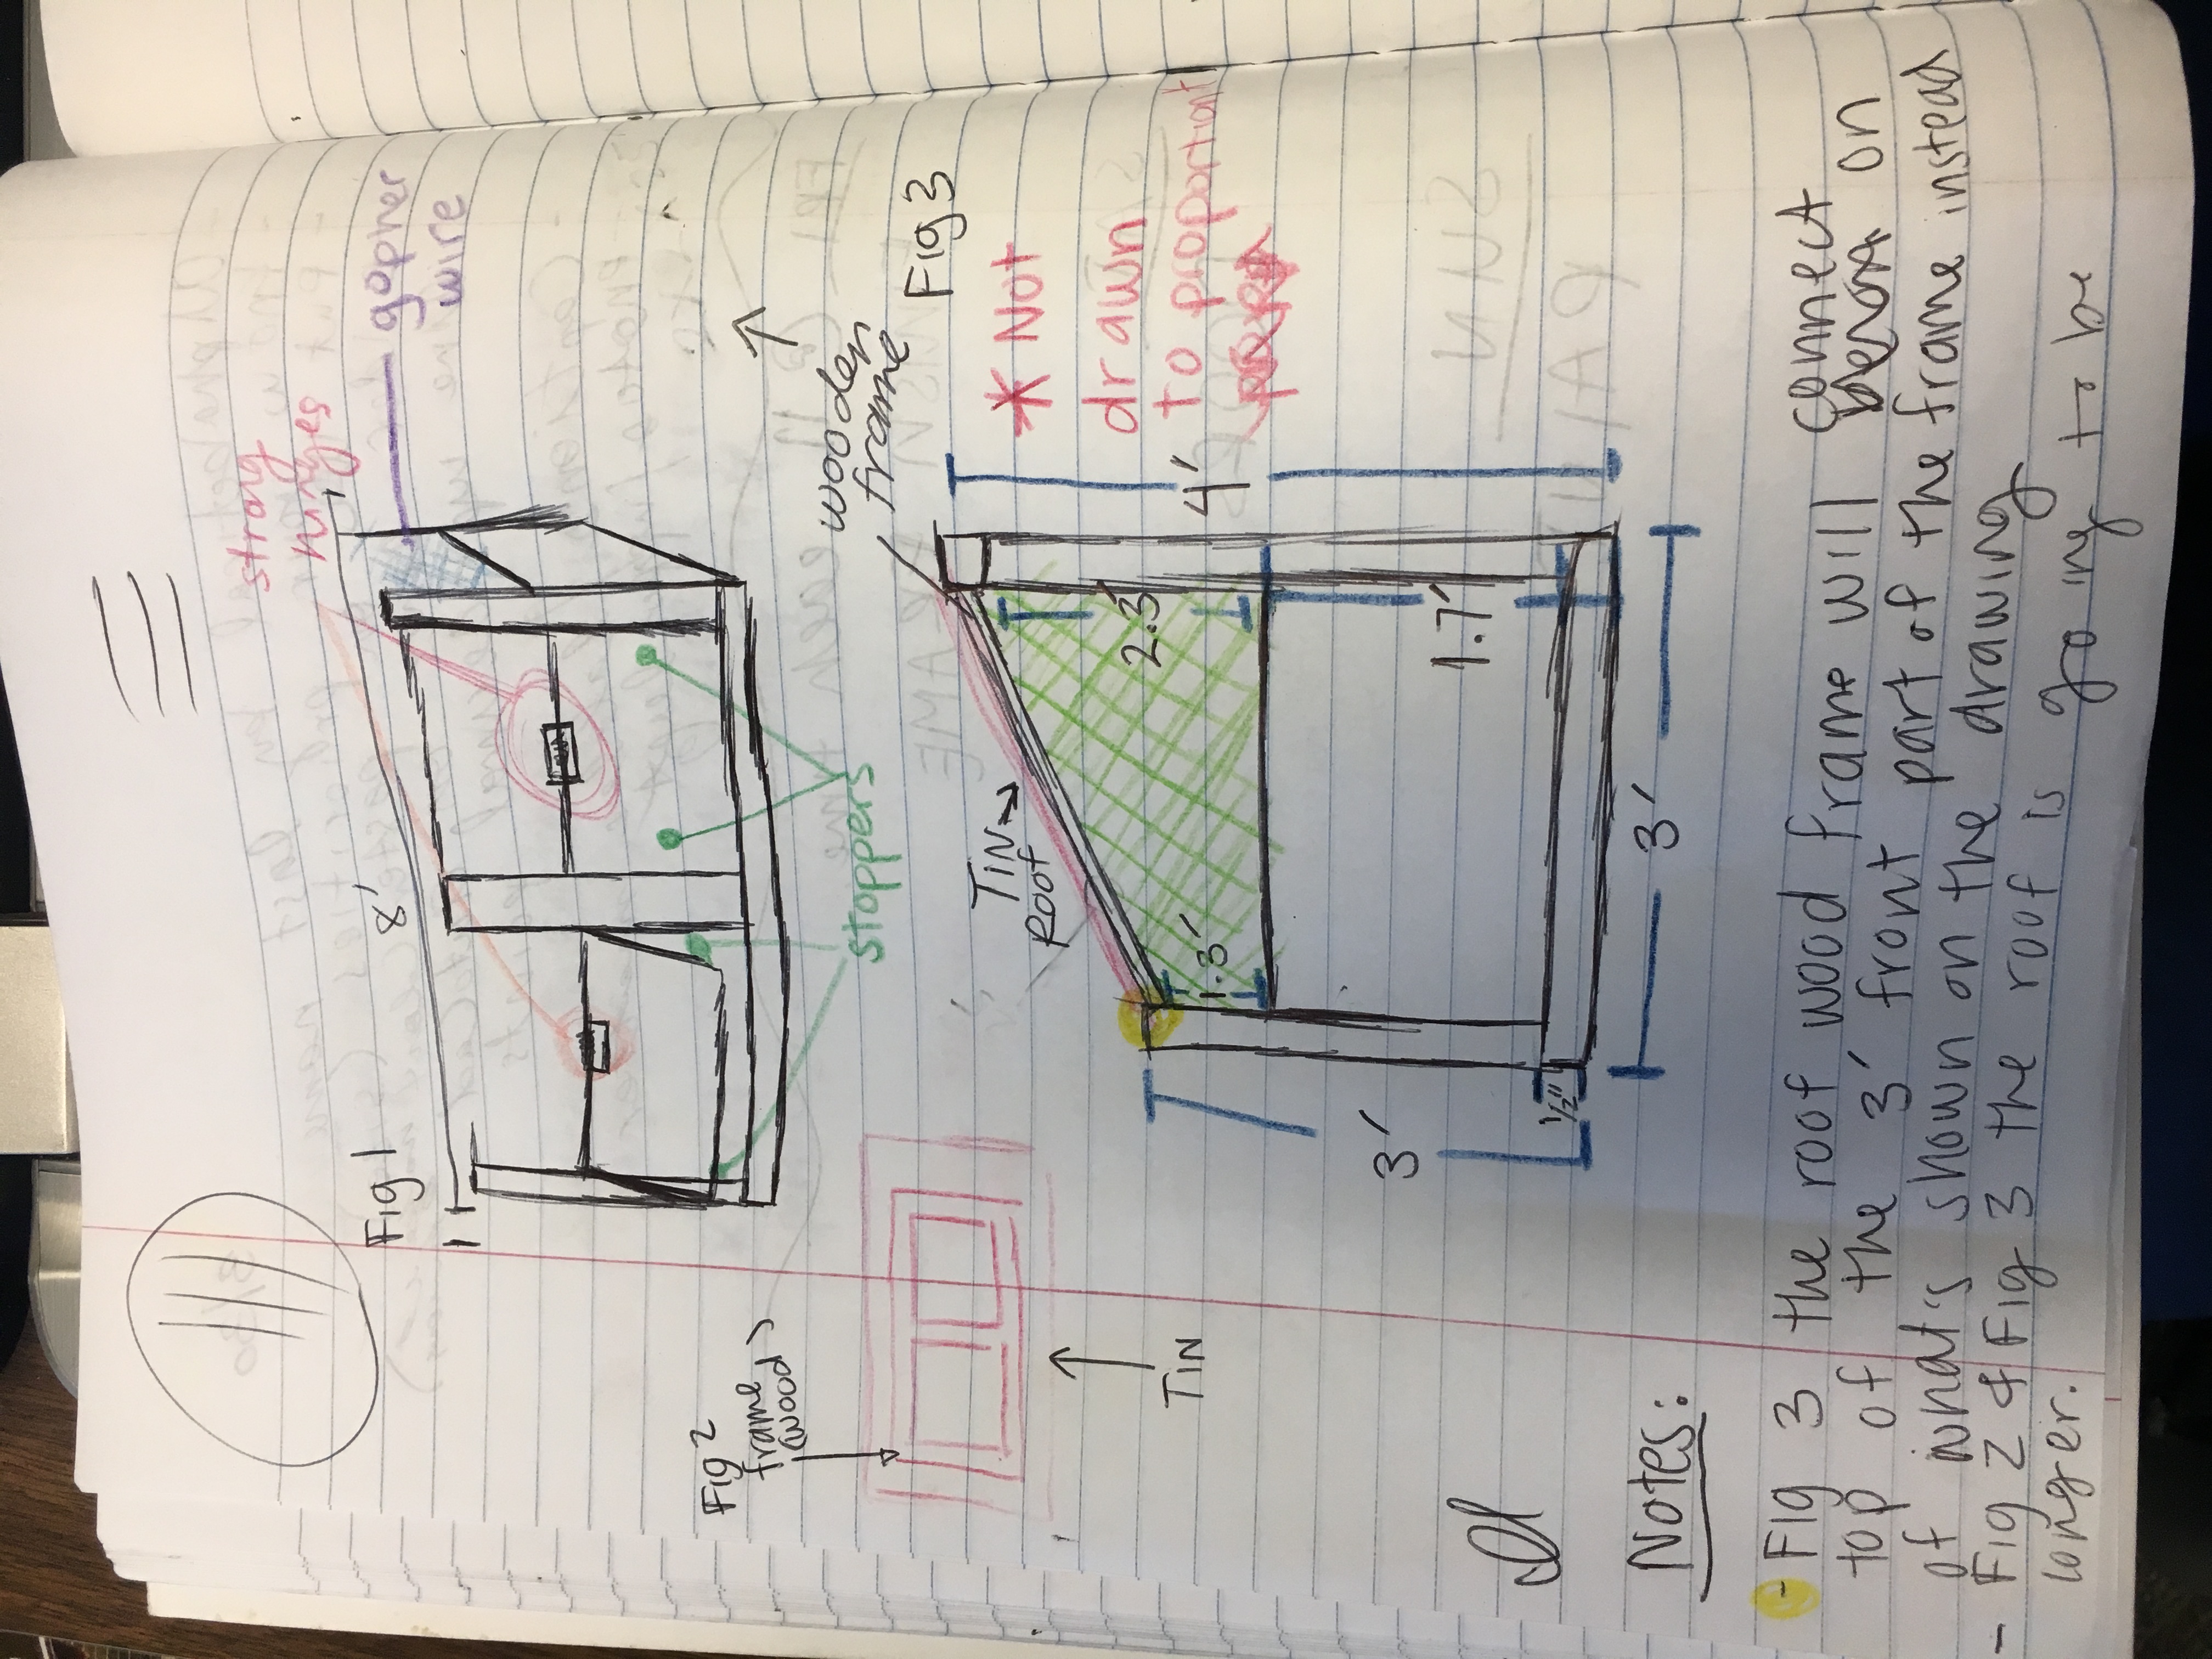 strong
hinges
gopher
wire
Fig 1
8'
stoppers
wooden
frame
Fig 2
frame
(wood)
TIN
Fig 3
* Not
drawn
to proportion
TIN
Roof
4'
2.3'
1.3'
1.7'
3'
1/2"
3'
Notes:
- Fig 3 the roof wood frame will connect on
top of the 3' front part of the frame instead
of what's shown on the drawing
- Fig 2 & Fig 3 the roof is going to be
longer.